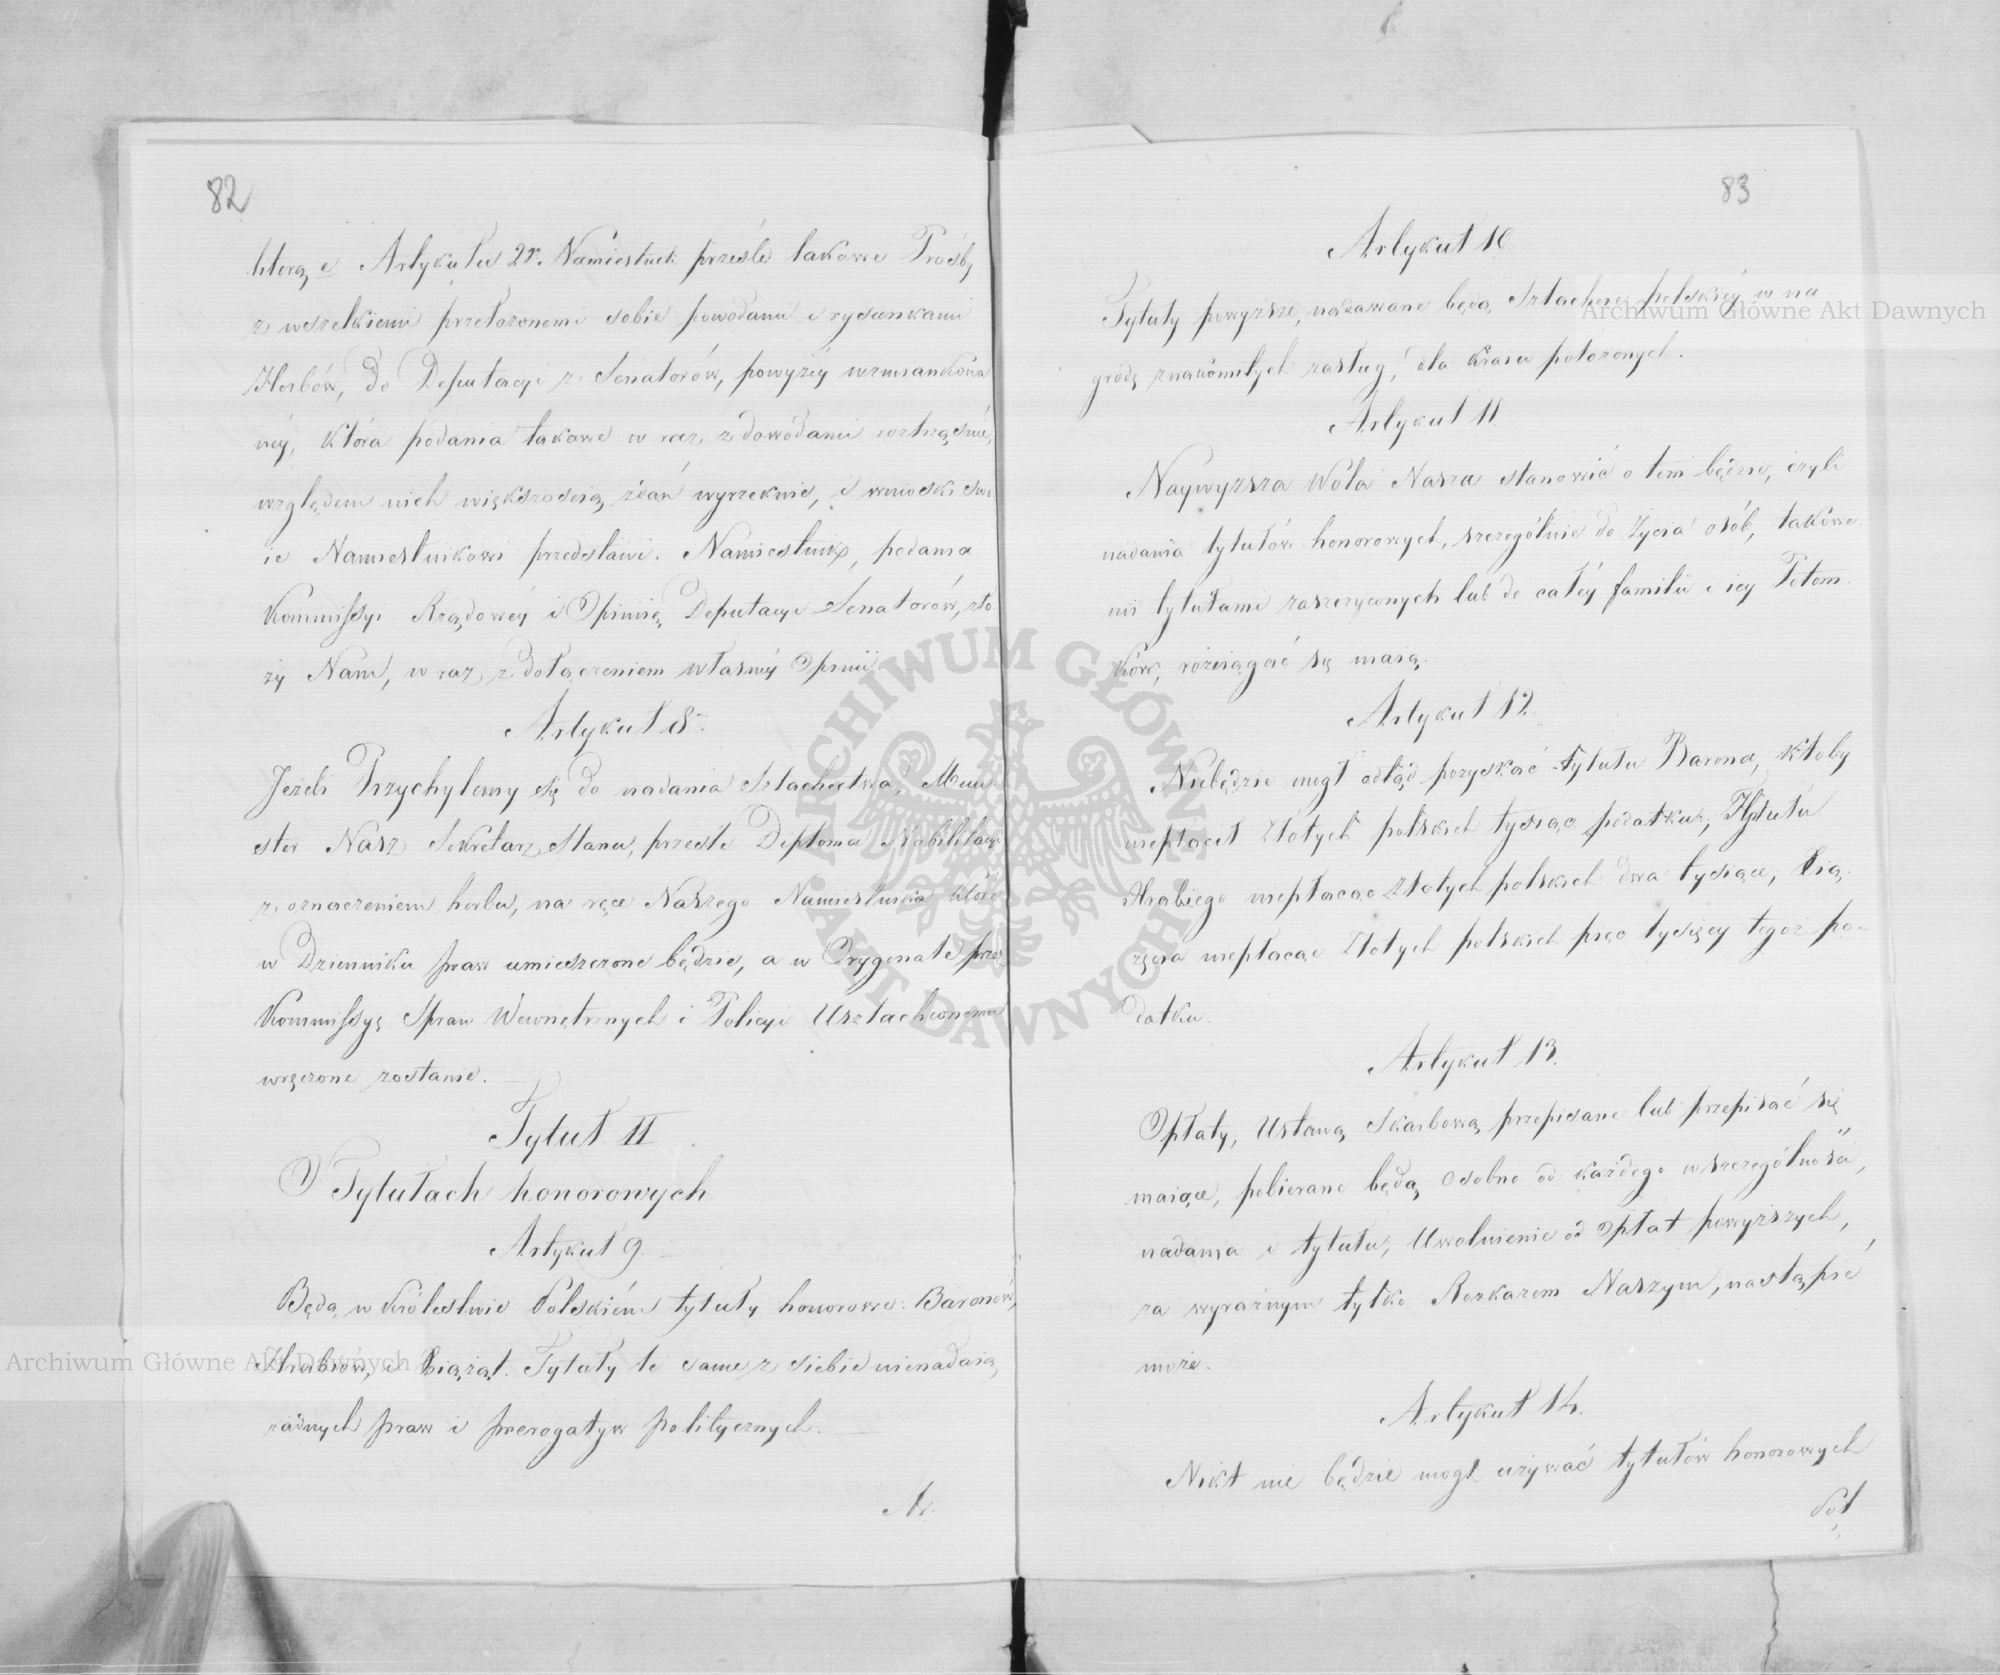 82
literą e Artykułu 2º. Namiestnik prześle takowe Prośby
z wszelkiemi przełożonemi sobie powodami i rysunkami
Herbów, do Deputacyi z Senatorów, powyżey wzmiankowa
néy, która podania takowe w raz z dowodami roztrząśnie,
względem nich większością zdań wyrzeknie, i wnioski swo
ie Namiestnikowi przedstawi. Namiestnik, podania
Kommissyi Rządowéy i Opinię Deputacyi Senatorów, zło
ży Nam, w raz z dołączeniem własnéy Opinii
Artykuł 8.
Jeżeli Przychylemy się do nadania Szlachectwa, Mini
ster Nasz Sekretarz Stanu, prześle Diploma Nobilitacyi
z oznaczeniem herbu, na ręce Naszego Namiestnika które
w Dzienniku praw umieszczone będzie, a w Oryginale przez
Kommissyę Spraw Wewnętrznych i Policyi Uszlachconemu
wręczone zostanie.
Tytuł II
O Tytułach honorowych
Artykuł 9.
Będą w Królestwie Polskiém tytuły honorowe: Baronów,
Hrabiów, i Xiążąt. Tytuły te same z siebie nienadaią
żadnych praw i prerogatyw politycznych.
Ar.
83
Artykuł 10
Tytuły powyższe, nadawane będą Szlachcie polskiéy w na
grodę znakomitych zasług, dla kraiu położonych.
Artykuł 11
Naywyższa Wola Nasza stanowić o tem będzie, czyli
nadania tytułów honorowych, szczególnie do życia osób, takowe
mi tytułami zaszczyconych lub do całéy familii i iey Potom
ków, rozciągać się maią.
Artykuł 12.
Niebędzie mógł odtąd pozyskać tytułu Barona, ktoby
niepłacił Złotych polskich tysiąc podatku; Tytułu
Hrabiego niepłacąc Złotych polskich dwa tysiące, Xią-
żęcia niepłacąc Złotych polskich pięc tysięcy tegoż po-
datku.
Artykuł 13.
Opłaty, Ustawą Skarbową przepisane lub przepisać się
maiące, pobierane będą osobno od każdego w szczególności,
nadania i tytułu; Uwolnienie od Opłat powyższych,
za wyraźnym tylko Rozkazem Naszym, nastąpić
może.
Artykuł 14.
Nikt nie będzie mógł używać tytułów honorowych
Pol
Archiwum Główne Akt Dawnych
Archiwum Główne Akt Dawnych
ARCHIWUM GŁÓWNE
AKT DAWNYCH